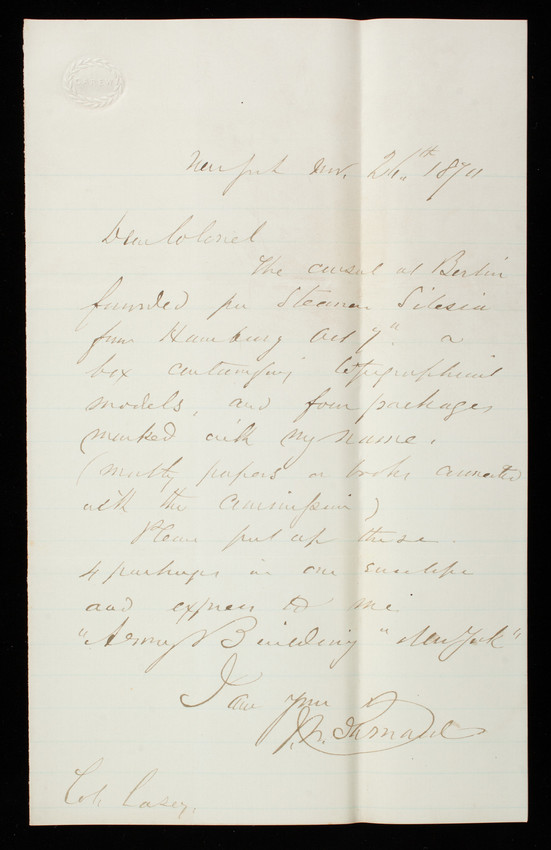 New York Nov. 26th 1870
Dear Colonel
The consul at Berlin
forwarded per Steamer Silesia
from Hamburg Oct 7" a
box containing topographical
models, and four packages
marked with my name.
(mostly papers or books connected
with the Commission)
Please put up these
4 packages in one envelope
and express to me
"Army Building" New York"
I am yours
J. G. Barnard
Col. Casey.